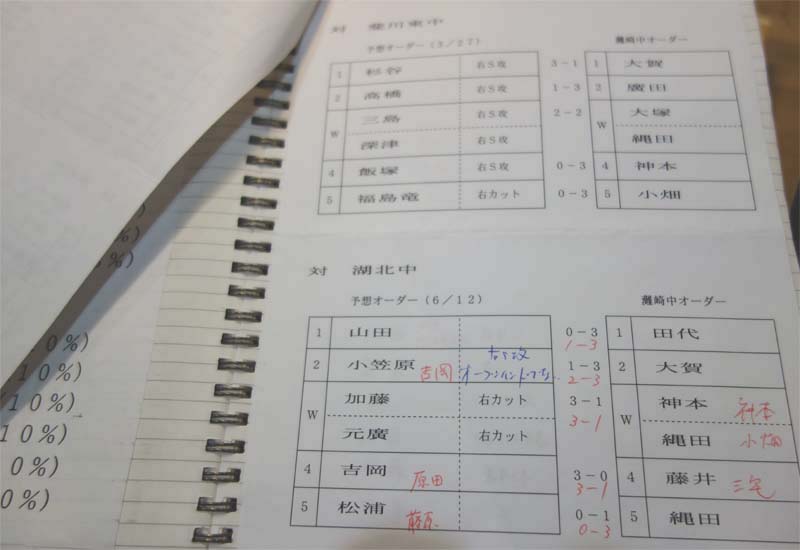 対 斐川東中
予想オーダー(3/27) 灘崎中オーダー
1 杉谷 右S攻 3-1 1 大賀
2 高橋 右S攻 1-3 2 廣田
三島 右S攻 2-2 大塚
W W
深津 右S攻 縄田
4 飯塚 右S攻 0-3 4 神本
5 福島竜 右カット 0-3 5 小畑
対 湖北中
予想オーダー(6/12) 灘崎中オーダー
1 山田 0-3 1 田代
1-3
右S攻
2 小笠原 吉岡 1-3 2 大賀
2-3
加藤 右カット 3-1 神本 神本
W 3-1 W
元廣 右カット 縄田 小畑
4 吉岡 原田 3-0 4 藤井 三宅
3-1
5 松浦 藤原 0-1 5 縄田
0-3
%)
%)
%)
0%)
10%)
10%)
10%)
0%)
0%)